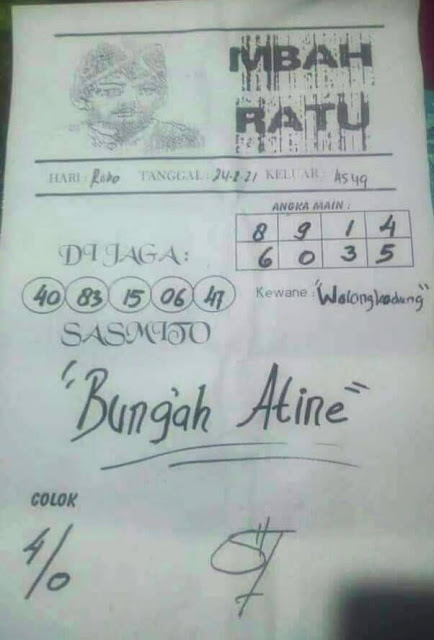 MBAH
RATU
HARI: Rabo TANGGAL: 24-2-21 KELUAR:
ANGKA MAIN :
8 9 1 4
6 0 3 5
DI JAGA:
40 83 15 06 47
Kewane: "Walangkadung"
SASMITO
"Bungah Atine"
COLOK
4/0